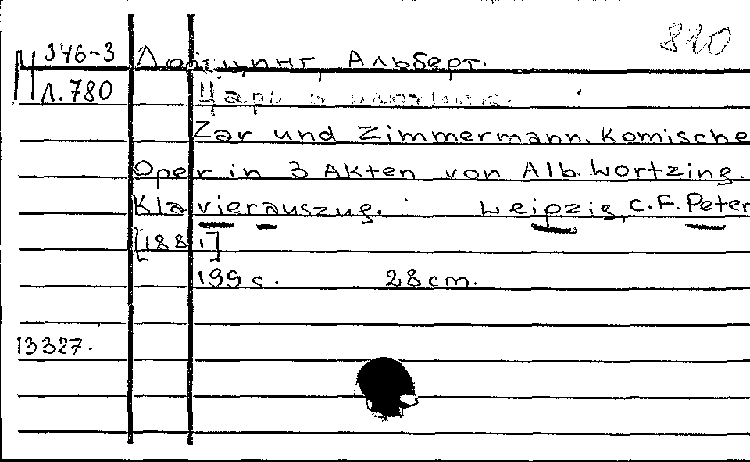 820
М 346-3 Лортцинг, Альберт.
Л.780 Царь и плотник.
Zar und Zimmermann. Komische
Oper in 3 Akten von Alb. Lortzing.
Klavierauszug. Leipzig, C.F. Peter
[1881]
199 с. 28 cm.
13327.